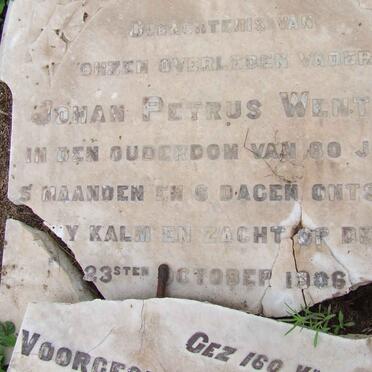 GEDACHTENIS VAN
ONZEN OVERLEDEN VADER
JOHAN PETRUS WENT
IN DEN OUDERDOM VAN 80 J
5 MAANDEN EN 6 DAGEN ONTS
Y KALM EN ZACHT OP DE
23STEN OCTOBER 1906
GEZ 160 V
VOORGE